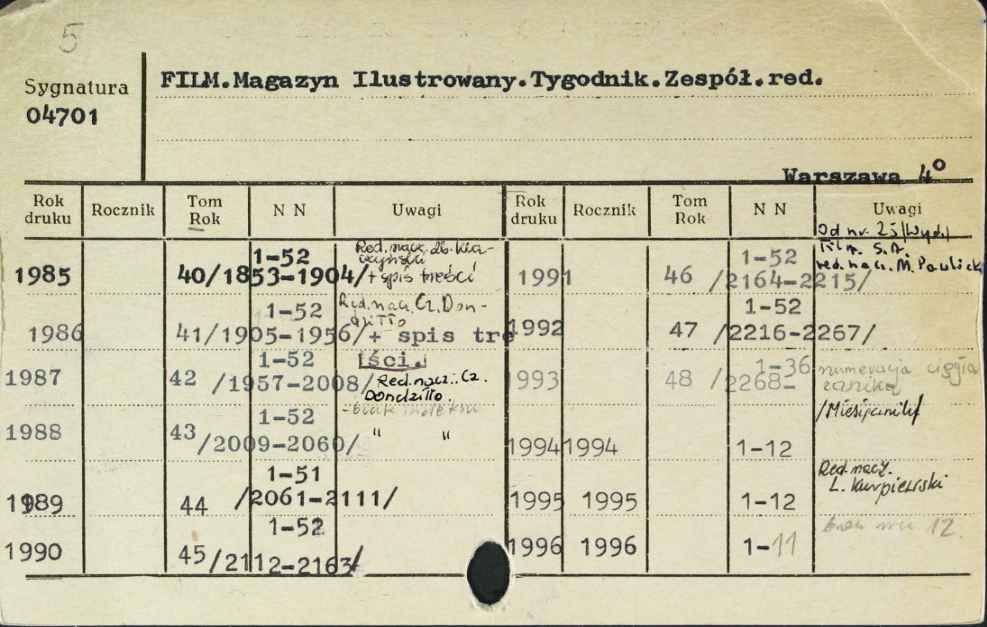 5
Sygnatura
04701
FILM.Magazyn Ilustrowany.Tygodnik.Zespół.red.
Warszawa 4°
Rok druku Rocznik Tom Rok N N Uwagi
1985 40/1853-1904/ 1-52 Red. nacz. + spis treści
1986 41/1905-1956/+ spis tre 1-52 Red. nacz. Cz. Don-
[ści.]
1987 42 /1957-2008/ 1-52 Red. nacz.: Cz. Dondziłło.
1988 43/2009-2060/ 1-52 " "
1989 44 /2061-2111/ 1-51
1990 45/2112-2163/ 1-52
Rok druku Rocznik Tom Rok N N Uwagi
Od nr. 25/Wyd./
Film S.A.
red. nacz. M. Pawlicki
1991 46 /2164-2215/ 1-52
1992 47 /2216-2267/ 1-52
1993 48 /2268- 1-36 numeracja
/Miesięcznik/
1994 1994 1-12
Red. nacz.
L. Kurpiewski
1995 1995 1-12
brak nru 12.
1996 1996 1-11